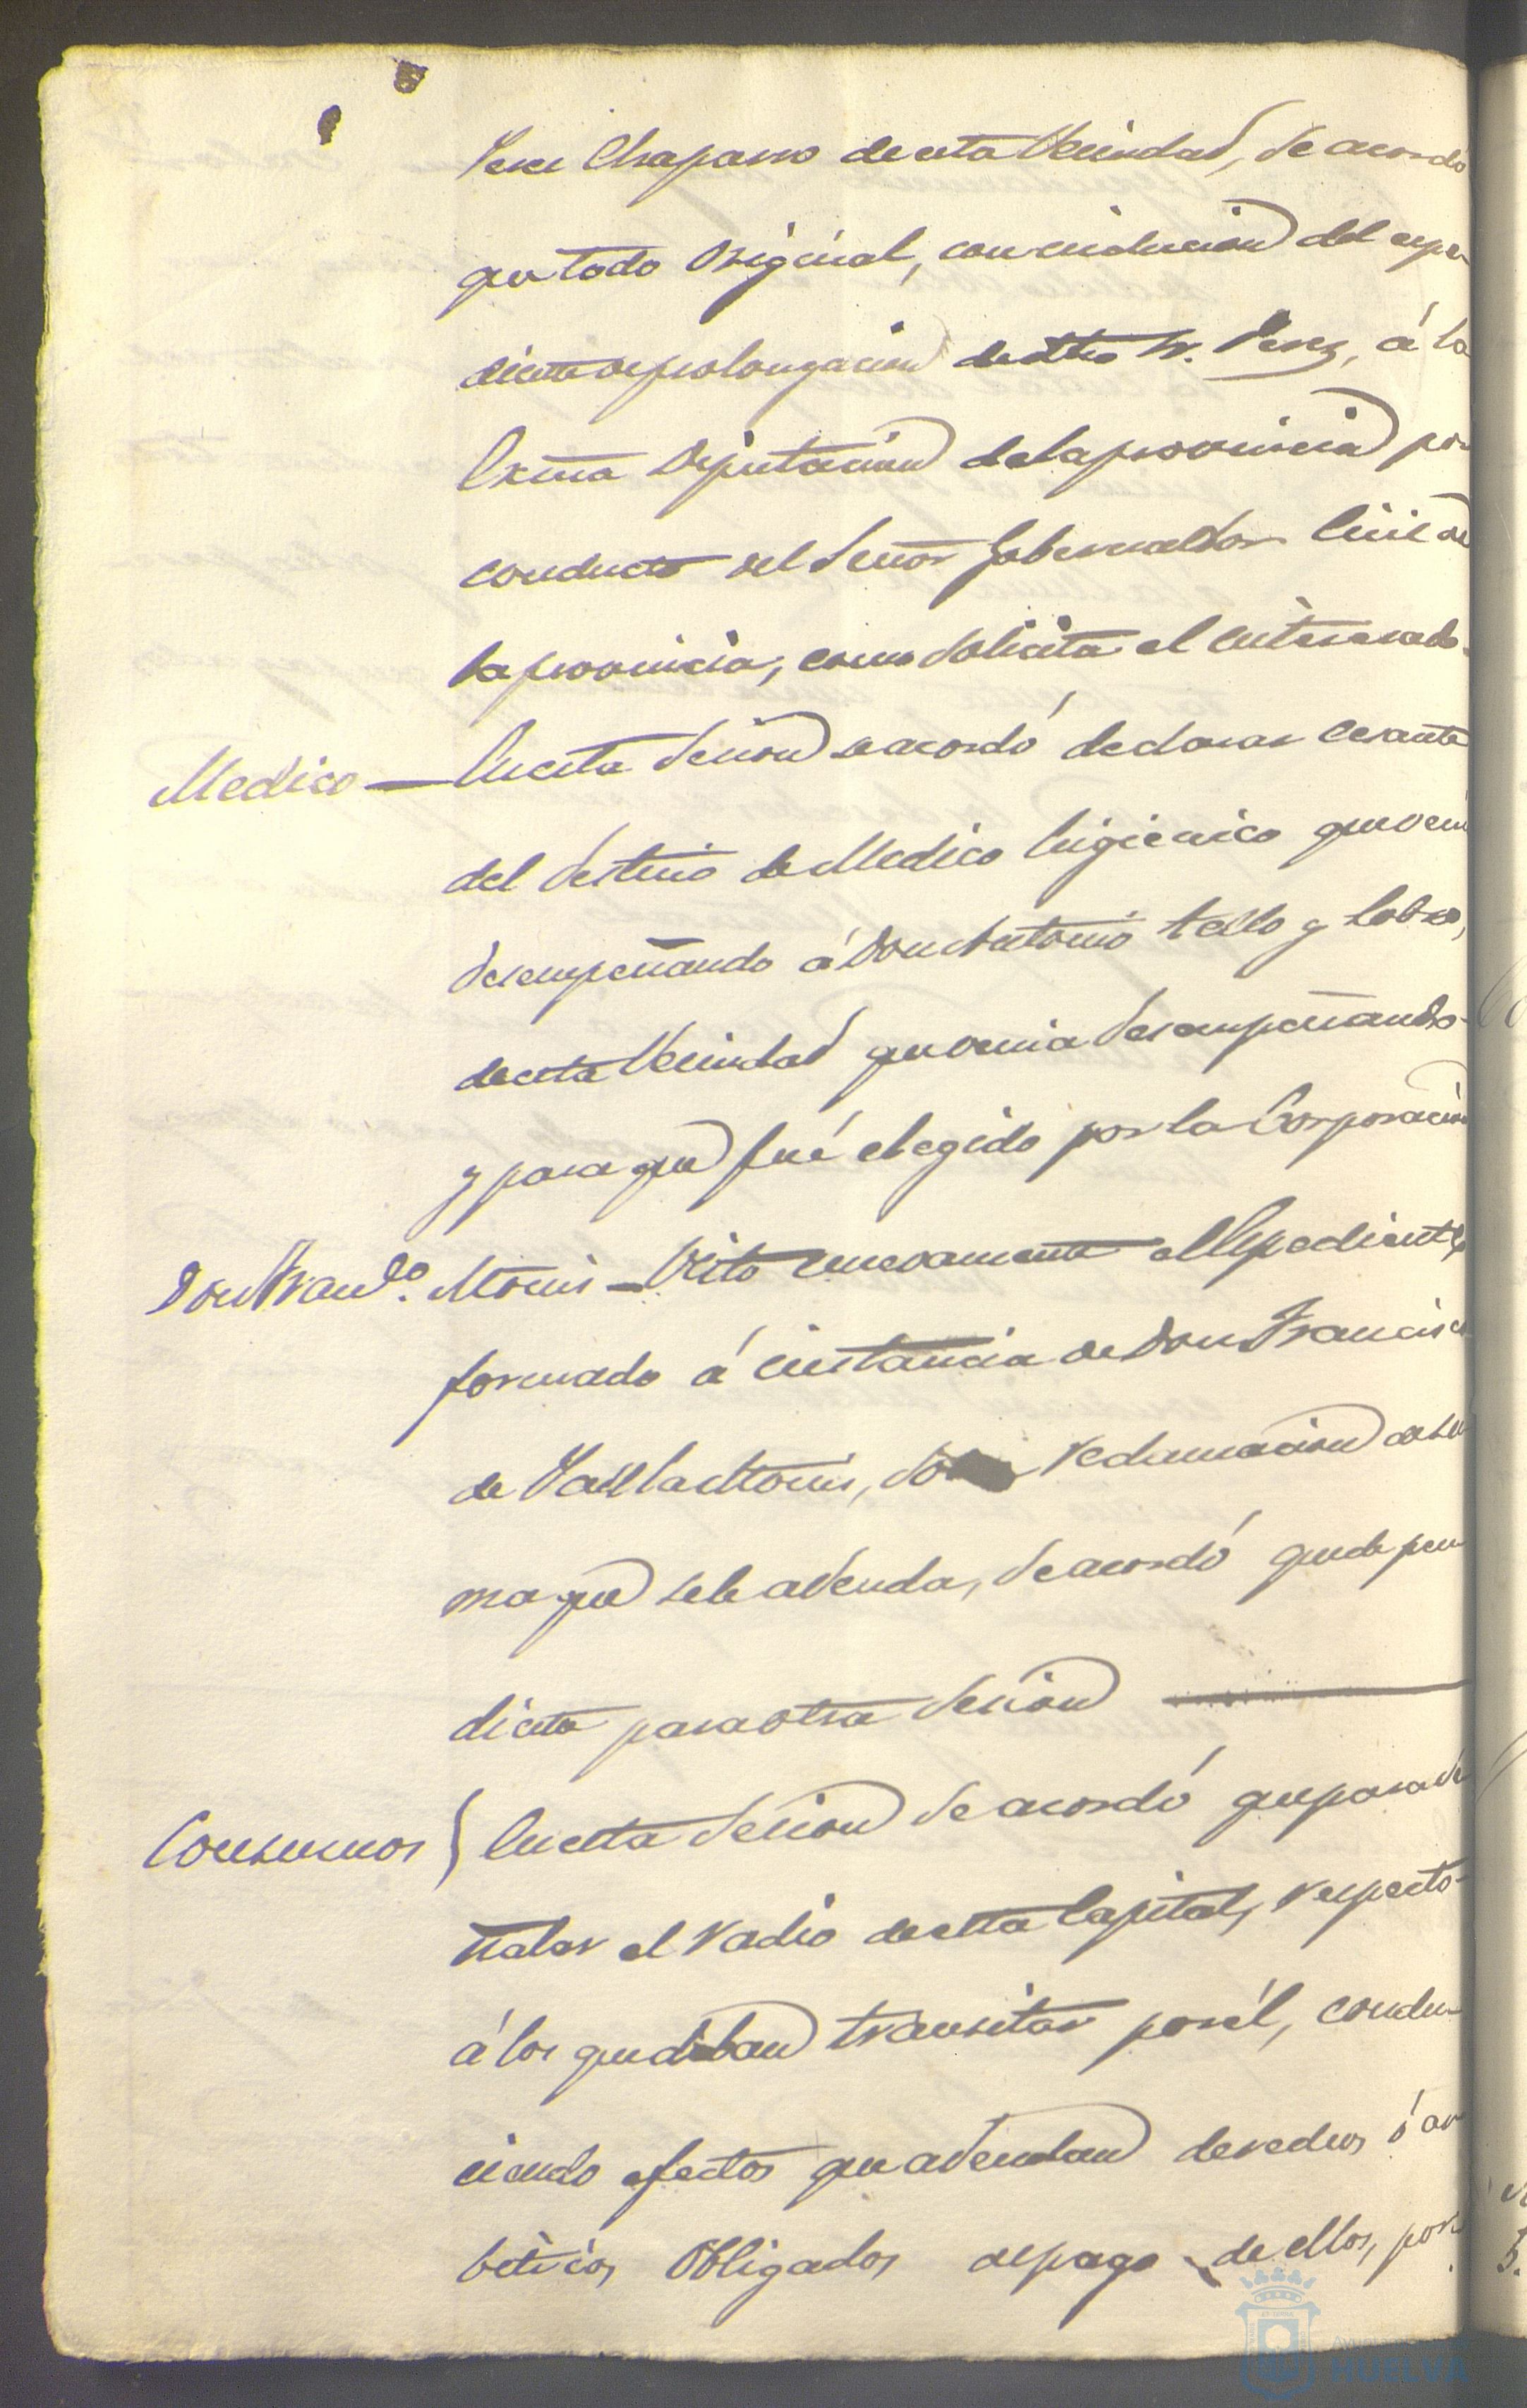 Perez Chaparro de esta Vecindad, Se acordó
que todo Original, con inclusion del espe
diente de prolongacion de dtho Sr. Perez, á la
Excma Diputacion de la provincia por
conducto del Señor Gobernador Civil de
la provincia, como Solicita el interesado.
Medico — En esta Sesion se acordó declarar cesante
del destino de Medico higienico que veni
desempeñando á Don Antonio Tello y Lobzo,
de esta Vecindad que venia desempeñando
y para que fué elegido por la Corporacion
Don Franco. Monis — Visto nuevamente el Expediente
formado á instancia de Don Francisco
de Paula Monis, So reclamacion de su
ma que se le adeuda, Se acordó quede pen
diente para otra Sesion
Consumos } En esta Sesion Se acordó que para se
ñalar el radio de esta Capital, respecto
á los que deban transitar por él, condu
ciendo efectos que adeudan derechos ó ar
bitrios, Obligados de pago de ellos, por
HUELVA